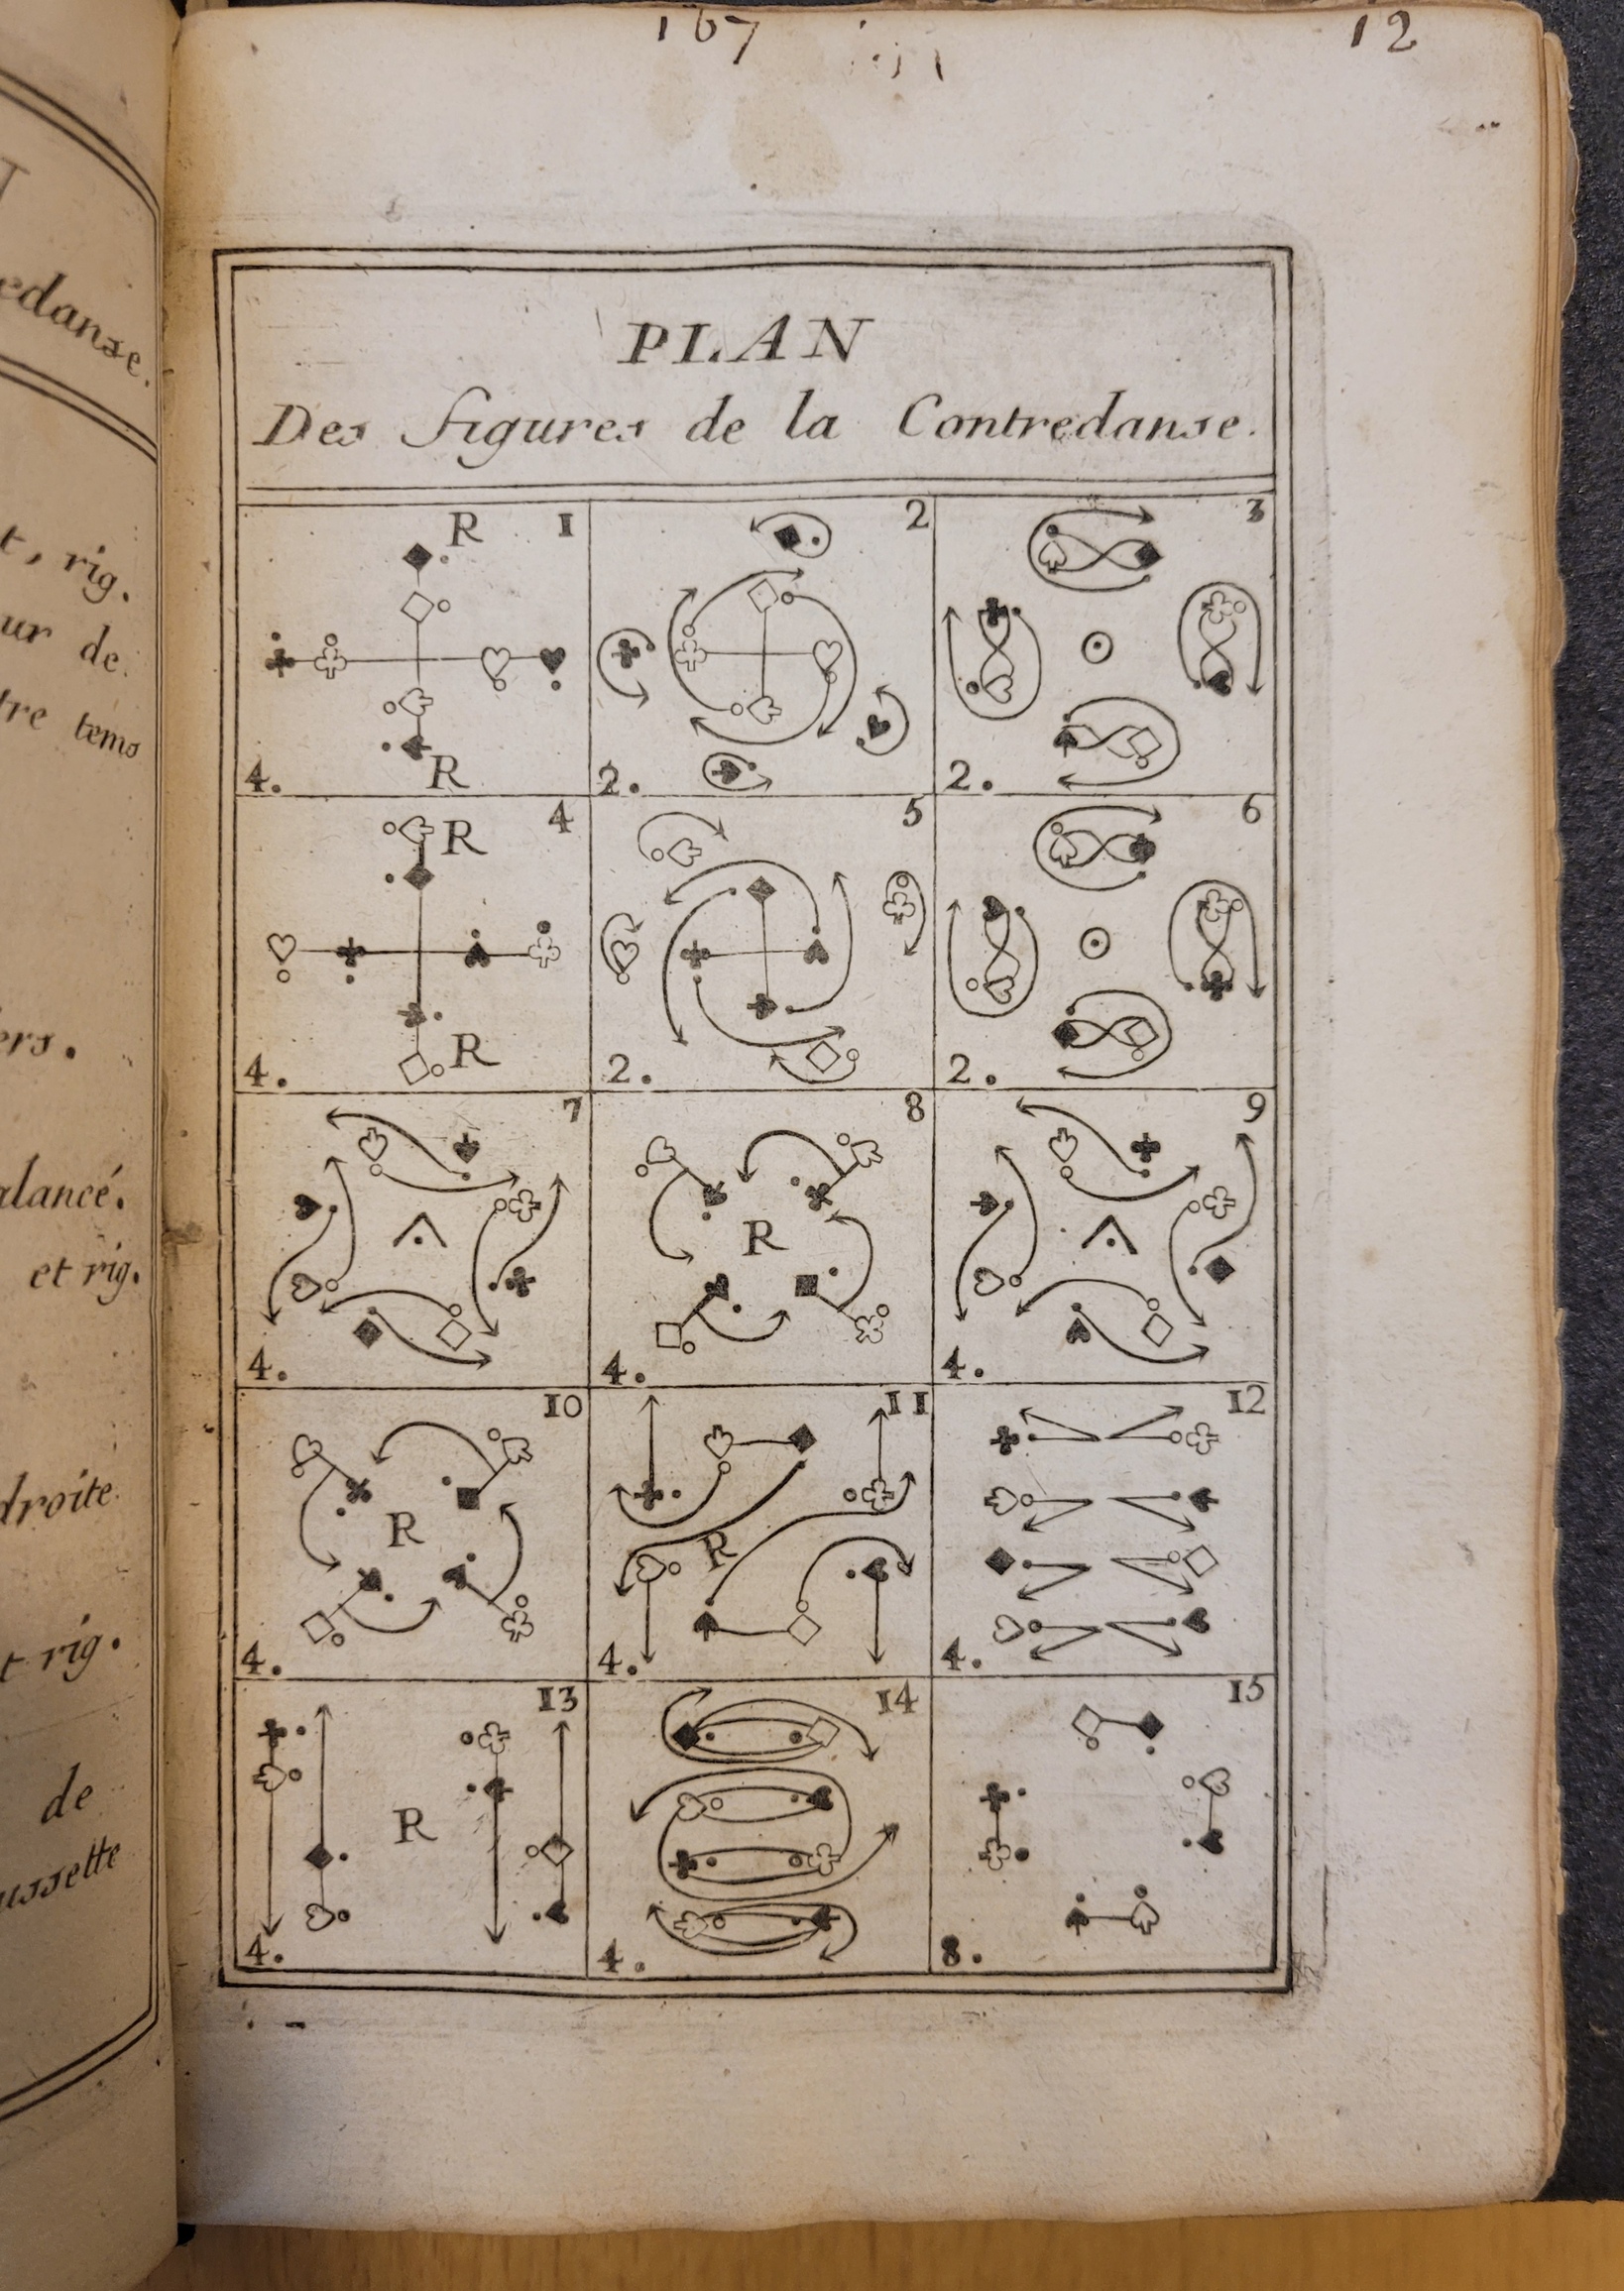 167
12
edanse.
t, rig.
ur de
tre tems
ers.
alancé.
et rig.
droite
t rig.
de
ussette
PLAN
Des figures de la Contredanse.
R 1
R
4.
2
2.
3
2.
R 4
R
4.
5
2.
6
2.
7
4.
8
R
4.
9
4.
10
R
4.
11
R
4.
12
4.
13
R
4.
14
4.
15
8.